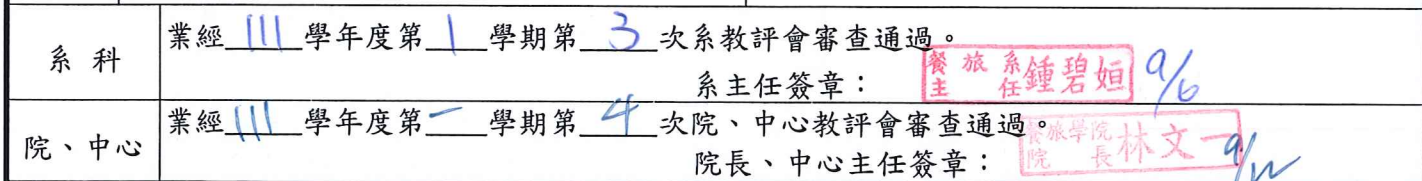 系科
業經 111 學年度第 1 學期第 3 次系教評會審查通過。
系主任簽章：餐旅系主任鍾碧姮 9/6
院、中心
業經 111 學年度第一學期第 4 次院、中心教評會審查通過。
院長、中心主任簽章：餐旅學院院長林文一 9/12